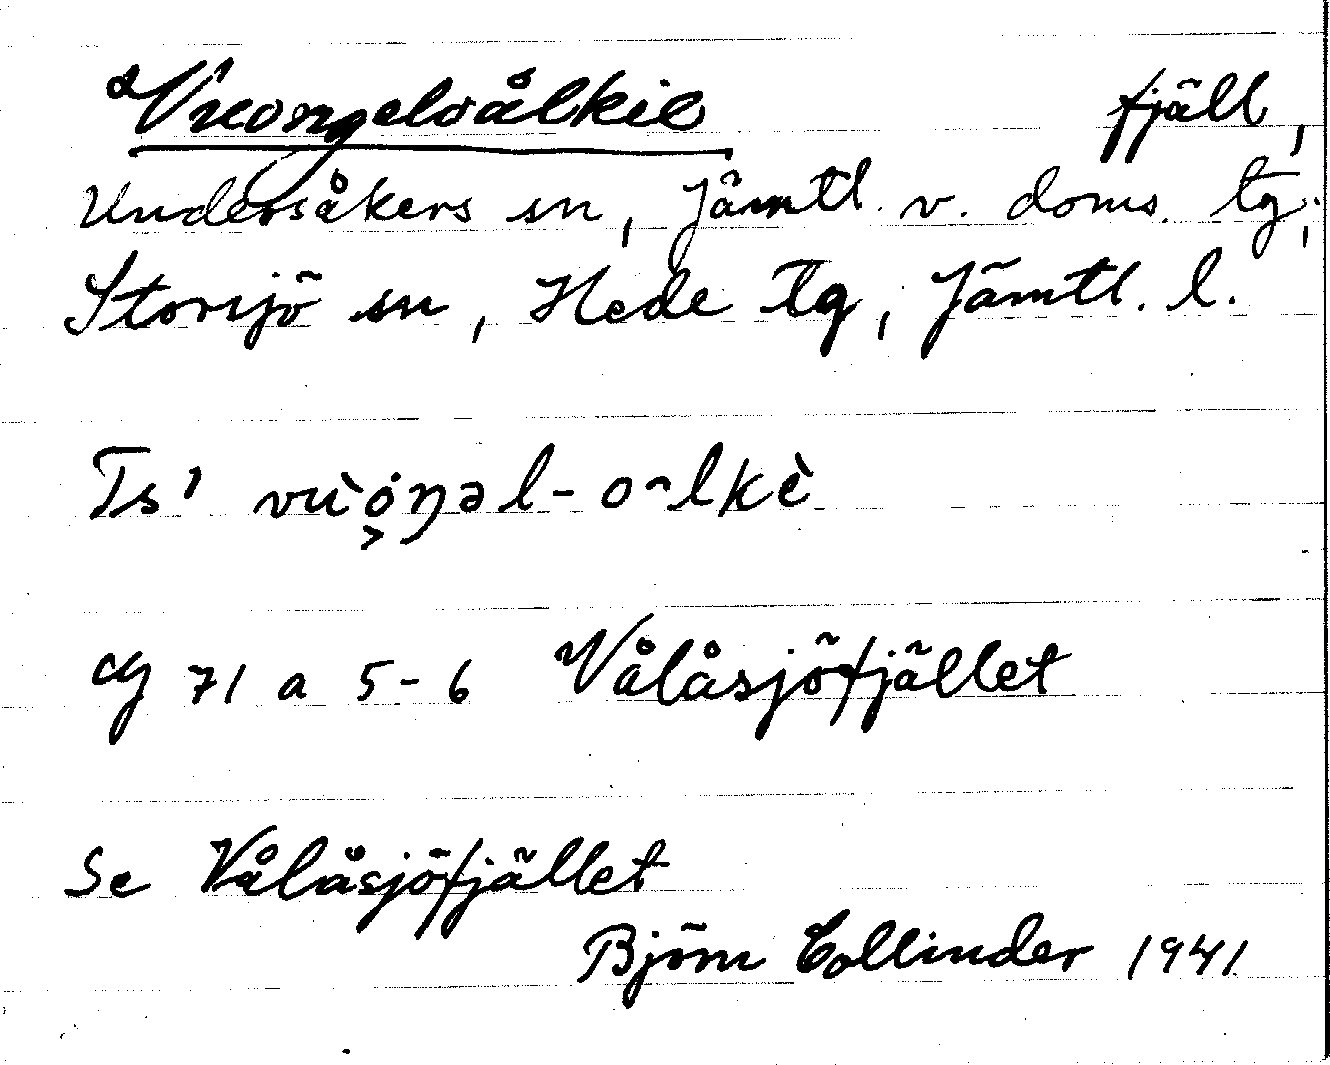 Vuongelvålkie fjäll,
Undersåkers sn, Jämtl. v. doms. tg;
Storsjö sn, Hede tg, Jämtl. l.
Ts' vùȯŋəl-o᷉lkè
Cg 71 a 5-6 Vålåsjöfjället
Se Vålåsjöfjället
Björn Collinder 1941